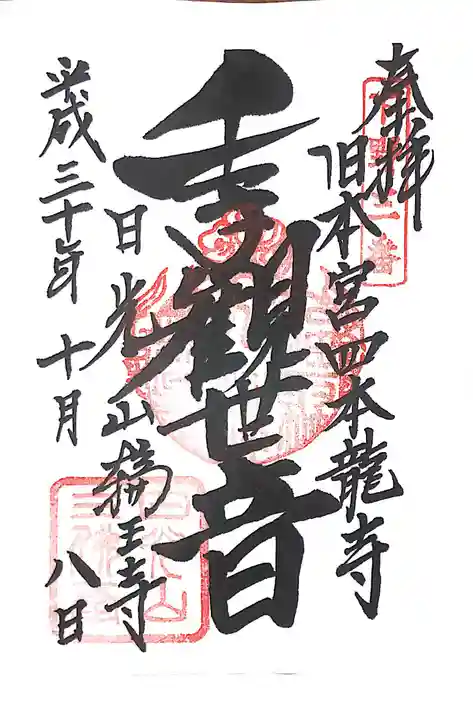 奉拝
旧本宮四本龍寺
千手觀世音
日光山輪王寺
平成三十年十月八日